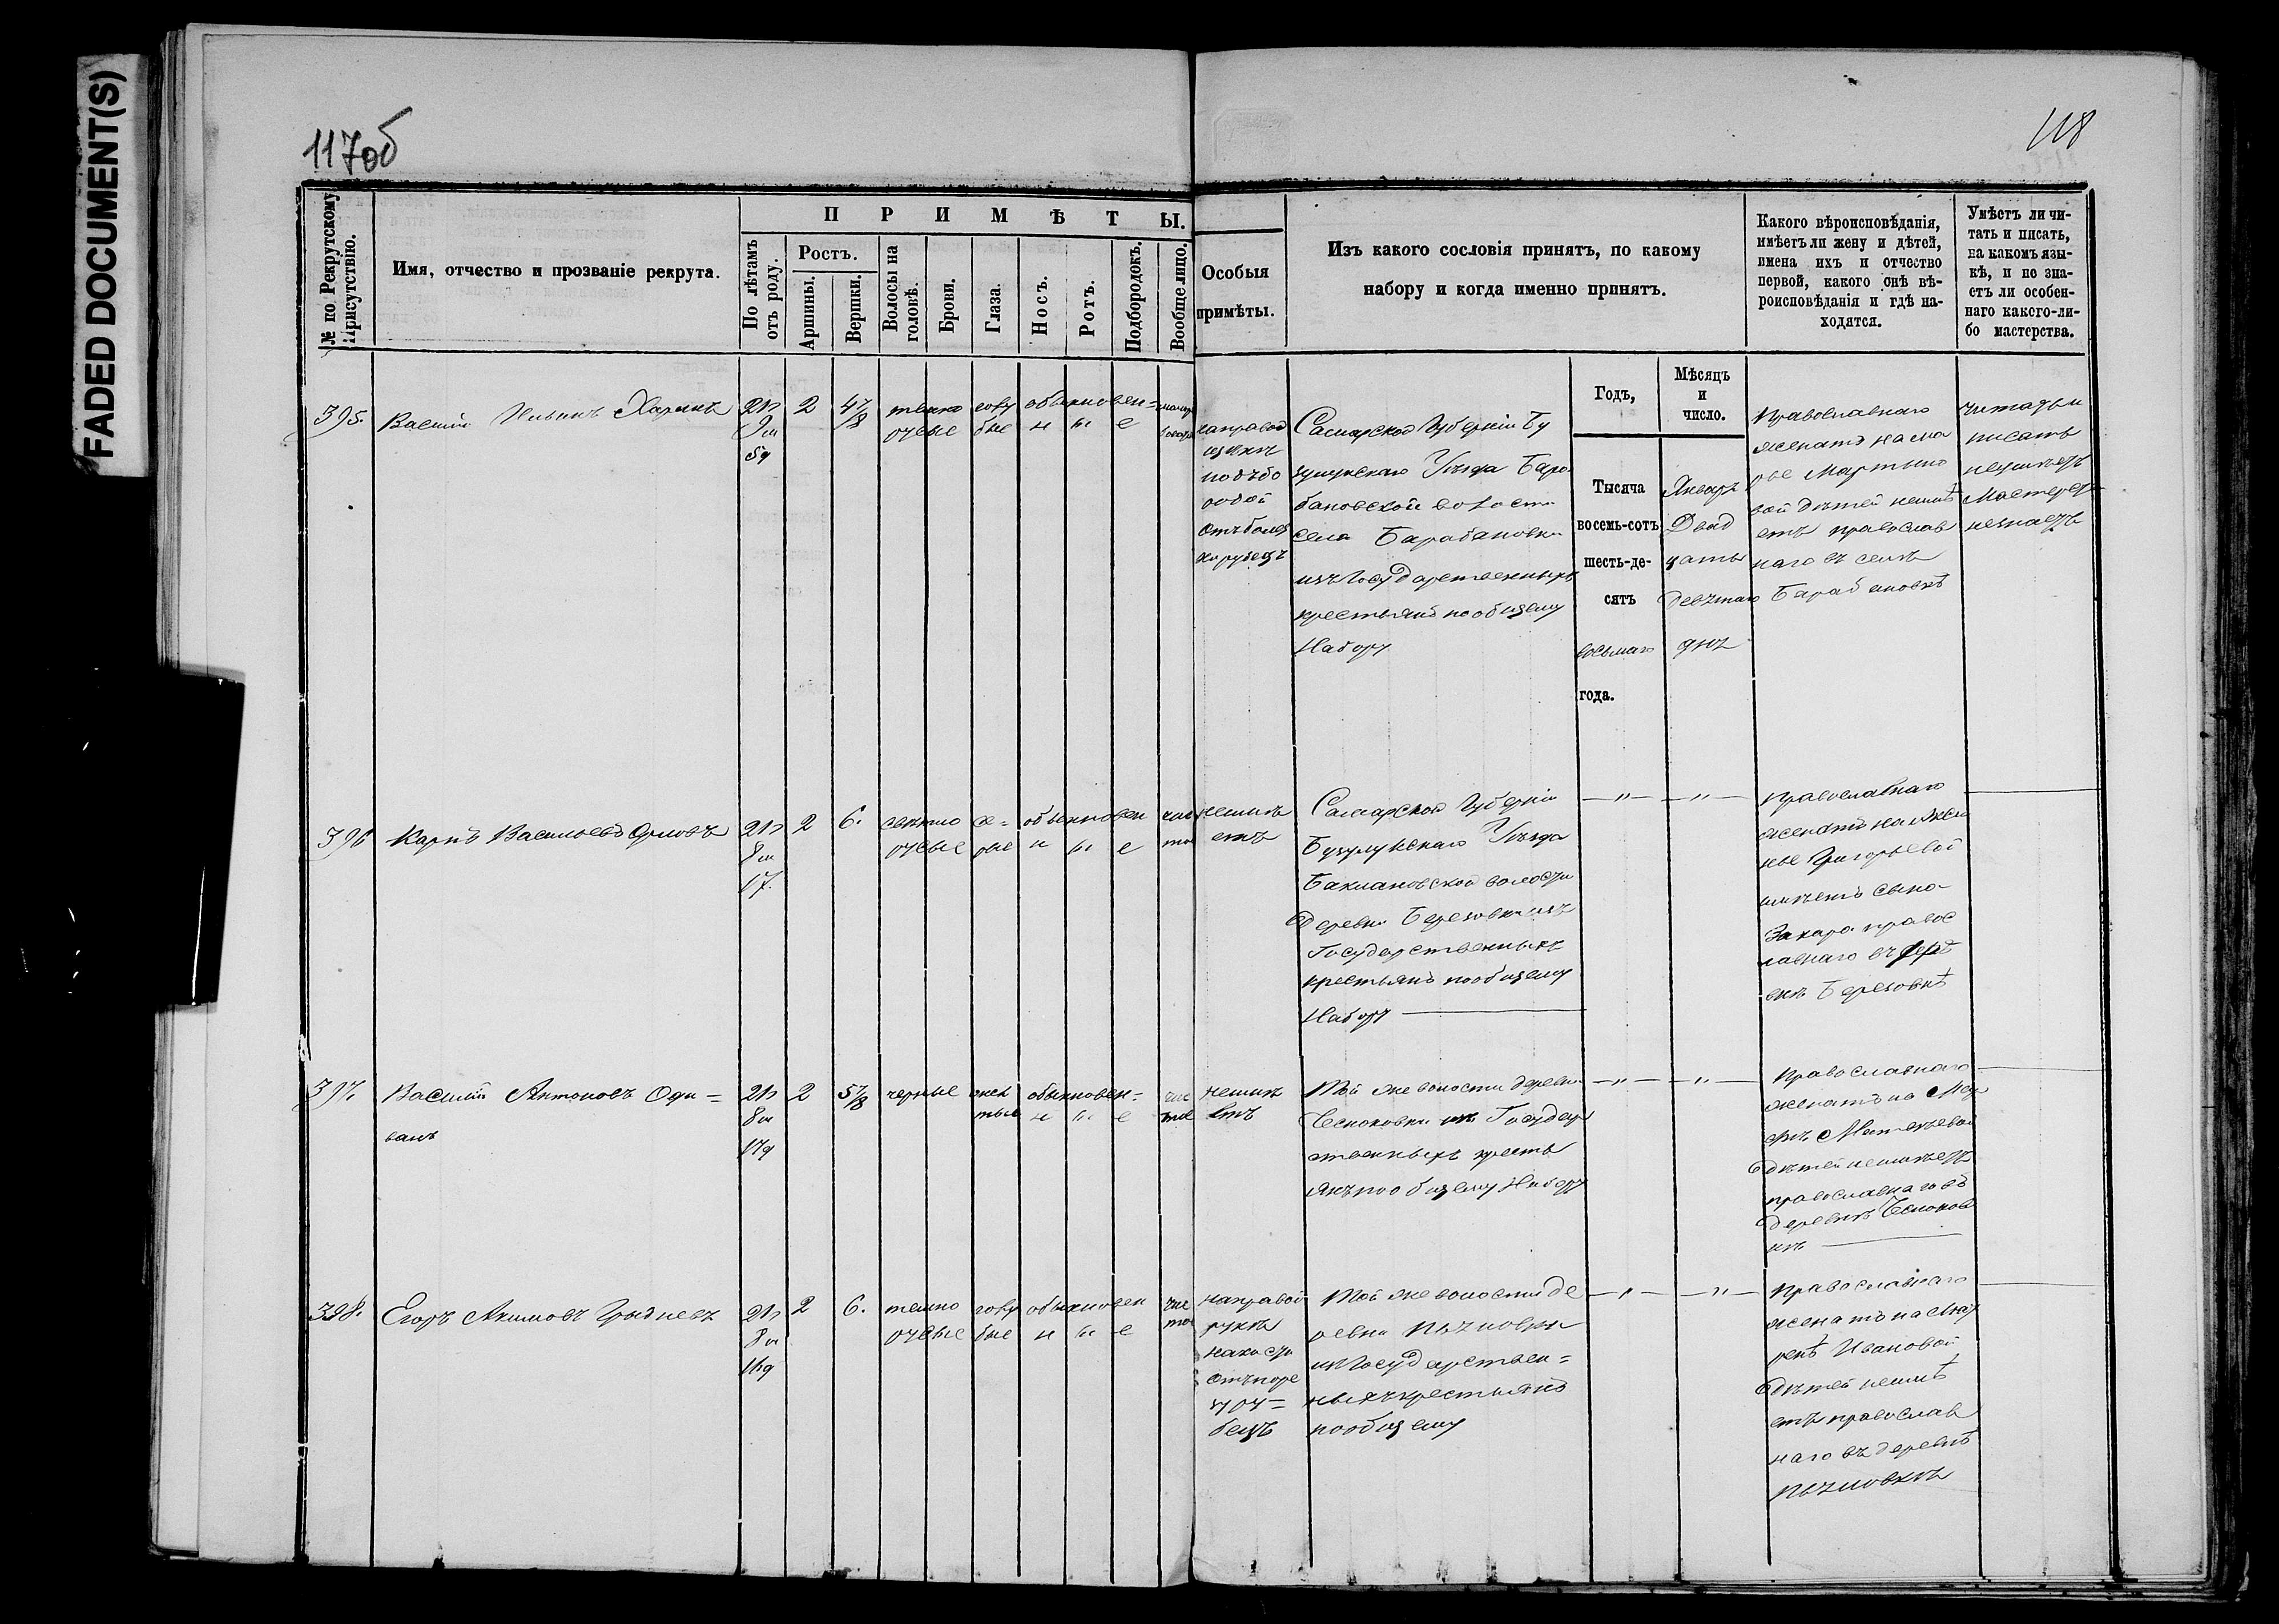 FADED DOCUMENT(S)
117об
118
№ по Рекрутскому Присутствію.
Имя, отчество и прозваніе рекрута.
ПРИМѢТЫ.
По лѣтамъ отъ роду.
Ростъ.
Аршины.
Вершки.
Волосы на головѣ.
Брови.
Глаза.
Носъ.
Ротъ.
Подбородокъ.
Вообще лицо.
Особыя
примѣты.
Изъ какого сословія принятъ, по какому
набору и когда именно принятъ.
Какого вѣроисповѣданія,
имѣетъ ли жену и дѣтей,
имена ихъ и отчество
первой, какого онѣ вѣ-
роисповѣданія и гдѣ на-
ходятся.
Умѣетъ ли чи-
тать и писать,
на какомъ язы-
кѣ, и не зна-
етъ ли особен-
наго какого-ли-
бо мастерства.
395.
Василій Ильинъ Харинъ
21л
9м
5д
2
4 7/8
темно
русые
голу
бые
обыкновен=
ные
направой
щекѣ
подъбо
родой
отъболяч
ки рубецъ
Самарской Губерніи Бу
зулукскаго Уѣзда Бара
бановской волости
села Барабановки
изъ Государственныхъ
крестьянъ пообщему
Набору
Годъ,
Тысяча
восемь-сотъ
шесть-де-
сятъ
восьмаго
года.
Мѣсяцъ
и
число.
Январь
Двад
цать
девятаго
дня
Православнаго
женатъ на Ма
рье Мартыно
вой дѣтей неимѣ
етъ православ
наго въ селѣ
Барабановкѣ
читать и
писать
неумѣетъ
Мастерства
незнаетъ
396
Карпъ Васильевъ Орловъ
21л
8м
17.
2
6.
свѣтло
русые
се=
рые
обыкновен
ные
чис
тое
неимѣ
етъ
Самарской Губерніи
Бузулукскаго Уѣзда
Баклановской волости
деревни Березовки изъ
Государственныхъ
крестьянъ пообщему
Набору
— " —
— " —
православнаго
женатъ на Аксе
нье Григорьевой
имѣетъ сына
Захара правос
лавнаго въ дер
евнѣ Березовкѣ
397.
Василій Антоновъ Оди=
ванъ
21л
8м
17д
2
5 7/8
черные
обыкновен=
ные
чис
тое
неимѣ
етъ
Той же волости деревни
Чесноковки изъ Государ
ственныхъ кресть
янъ пообщему Набору
— " —
— " —
Православнаго
женатъ на Мар
фѣ Матвѣевой
дѣтей неимѣетъ
православнаго въ
деревнѣ Чесноков
кѣ
398.
Егоръ Акимовъ Гридневъ
21л
8м
16д
2
6.
темно
русые
голу
бые
обыкновен
ные
чис
тое
направой
рукѣ
накости
отъпоре
зу ру=
бецъ
Той же волости де
ревни
изъ Государствен=
ныхъ крестьянъ
пообщему
— " —
— " —
Православнаго
женатъ на Мат
ренѣ Ивановой
дѣтей неимѣ
етъ православ
наго въ деревнѣ